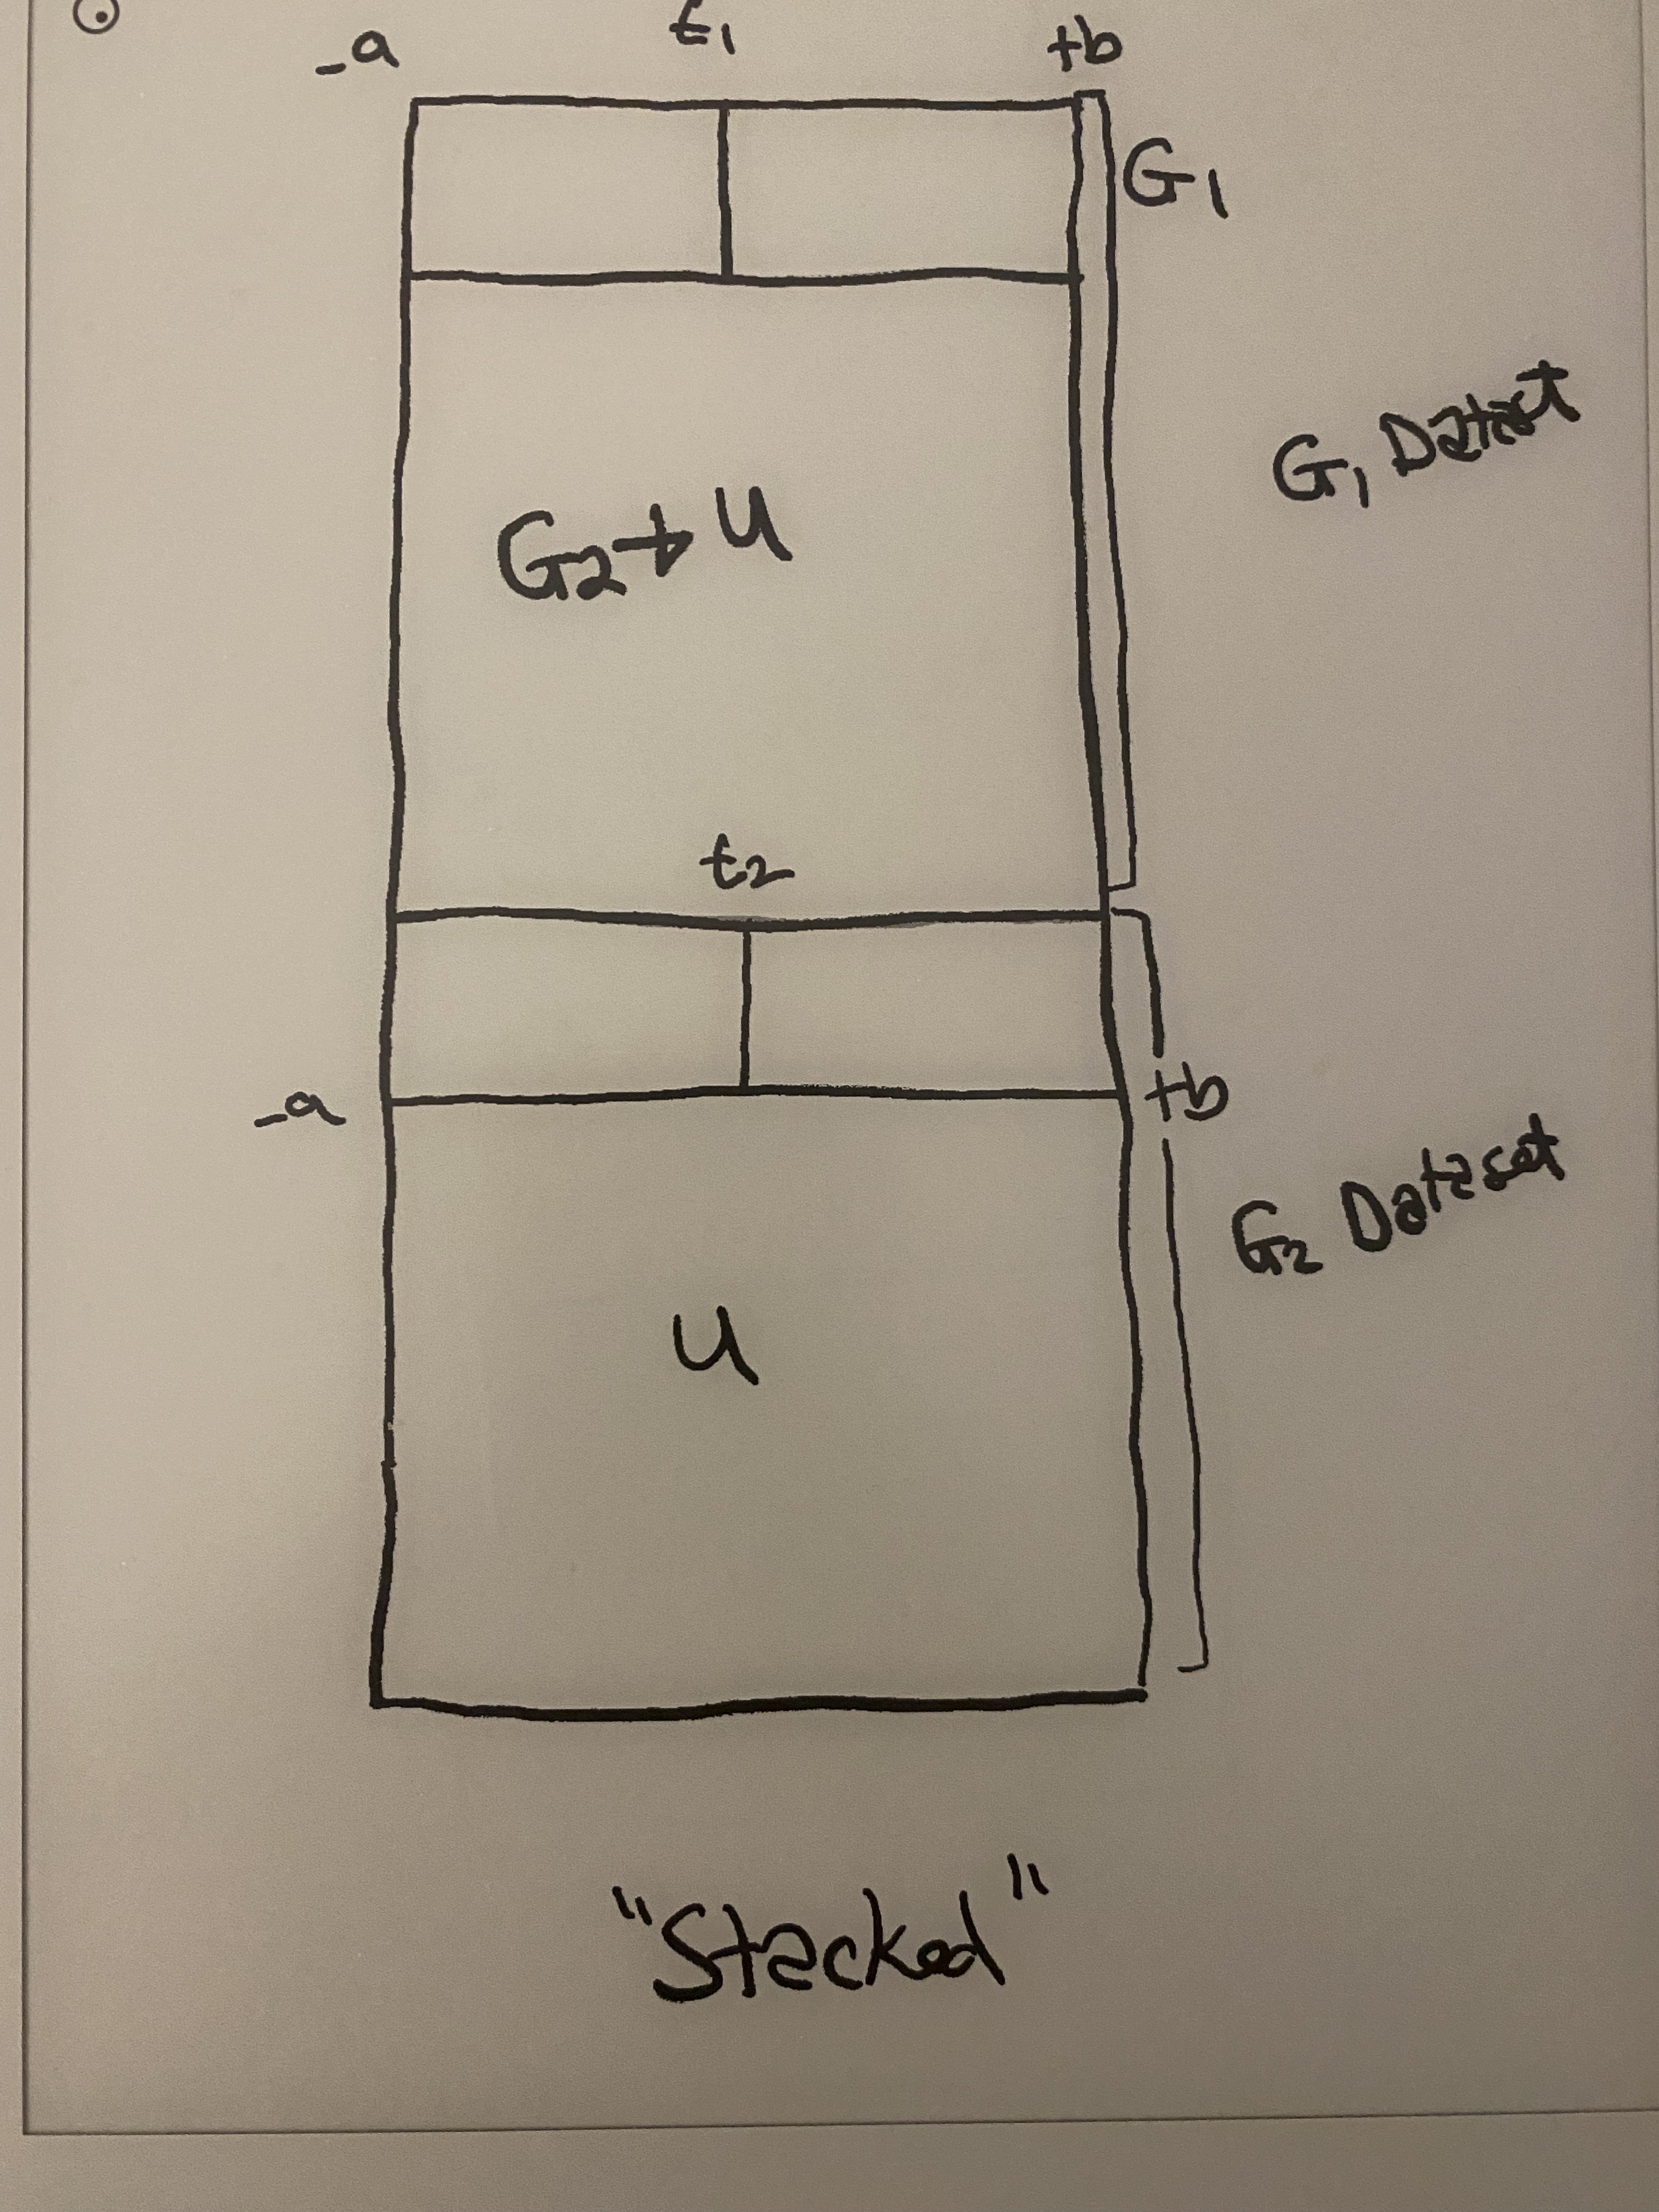 -a t1 +b
G1
G1 Dataset
G2 + U
t2
-a +b
G2 Dataset
U
"Stacked"